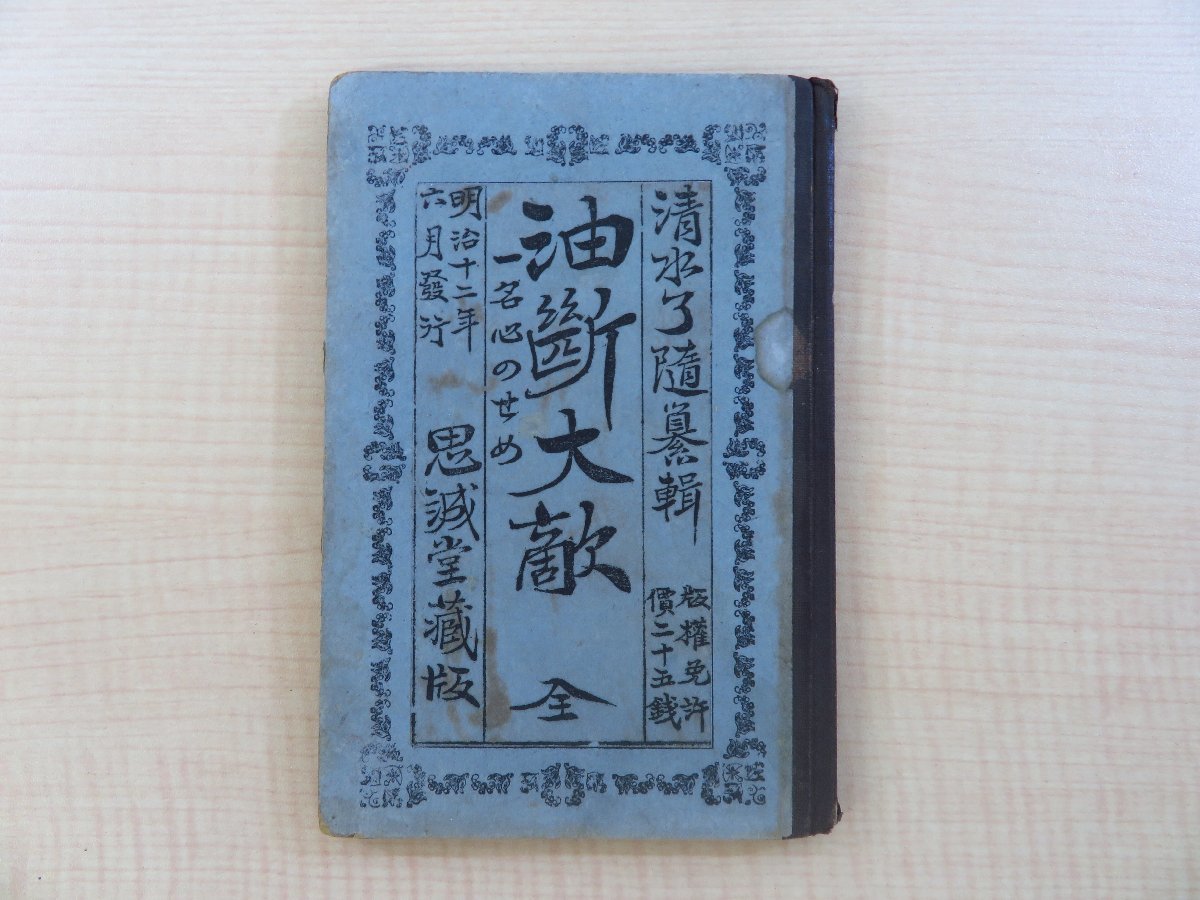 清水了隨纂輯
版權免許
價二十五錢
油斷大敵 全
一名心のせめ
明治十二年
六月發行
思誠堂藏版